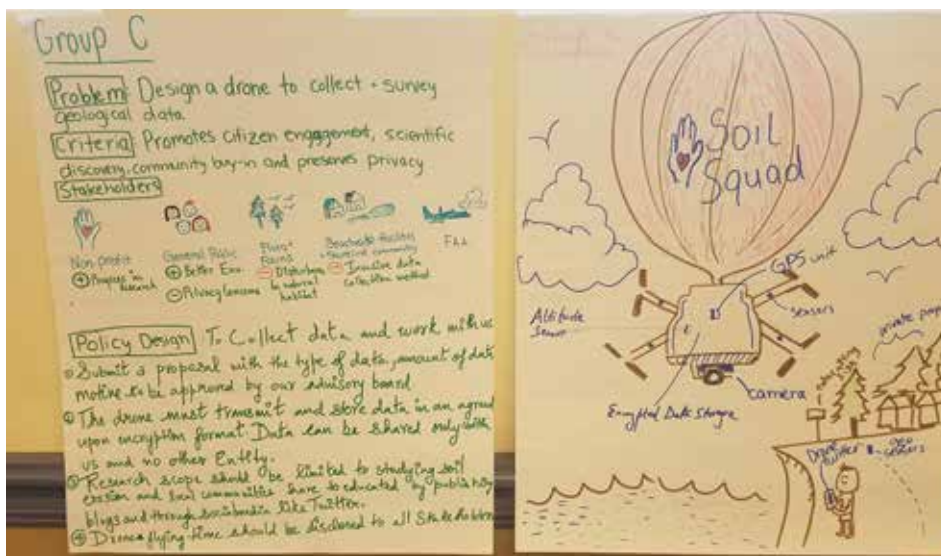 Group C
Problem: Design a drone to collect + survey
geological data
Criteria: Promotes citizen engagement, scientific
discovery, community buy-in and preserves privacy
Stakeholders
Non profit
+ Progress in
research
General Public
+ Better Env.
- Privacy Concerns
Flora +
- Disturbance
in natural
habitat
Beachside
- Invasive data
collection method
FAA
Policy Design To Collect data and work with us
Submit a proposal with the type of data, amount of data
motive to be approved by our advisory board
The drone must transmit and store data in an agreed
upon encryption format. Data can be shared only with
us and no other Entity.
Research scope should be limited to studying soil
erosion and local communities have to educated by publishing
blogs and through social media like Twitter.
Drone flying time should be disclosed to all Stakeholders
Soil
Squad
GPS unit
sensors
Altitude
sensor
camera
Encrypted Data Storage
private
Drone
geo
sensors